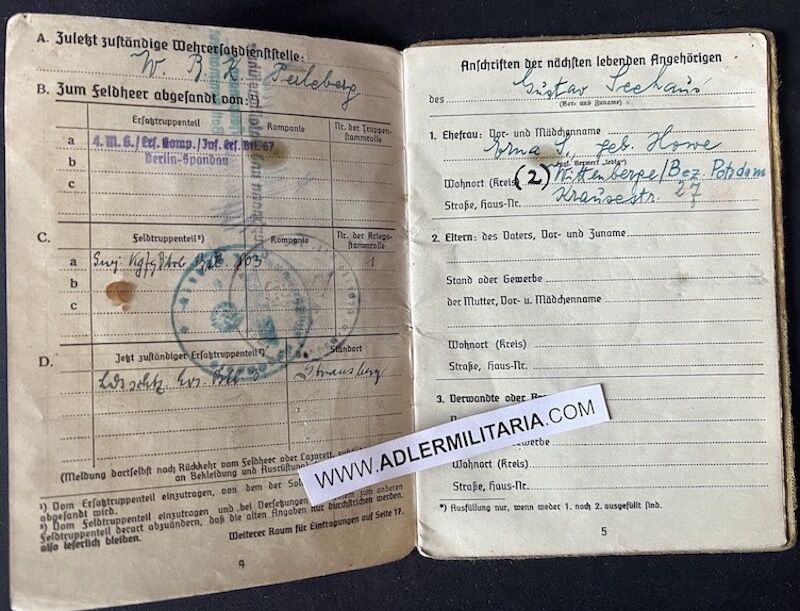 A. Zuletzt zuständige Wehrersatzdienststelle:
W. B. K. Perleberg
B. Zum Feldheer abgesandt von:¹)
Ersatztruppenteil
Kompanie
Nr. der Truppenstammrolle
a 4. M. G./Ers. Komp./Inf. Ers. Btl. 67
Berlin-Spandau
b
c
C.
Feldtruppenteil²)
Kompanie
Nr. der Kriegsstammrolle
a
1
b
c
D.
Jetzt zuständiger Ersatztruppenteil²)
Standort
Lds. schtz. Ers. Btl. 3 Strausberg
(Meldung dortselbst nach Rückkehr vom Feldheer oder Lazarett,
an Bekleidung und Ausrüstung
¹) Vom Ersatztruppenteil einzutragen, von dem der
abgesandt wird.
²) Vom Feldtruppenteil einzutragen und bei Versetzungen zum anderen
Feldtruppenteil derart abzuändern, daß die alten Angaben nur durchstrichen werden,
also leserlich bleiben.
Weiterer Raum für Eintragungen auf Seite 17.
4
Anschriften der nächsten lebenden Angehörigen
des Gustav Seehaus
(Vor- und Zuname)
1. Ehefrau: Vor- und Mädchenname
Erna S. geb. Howe
Wohnort (Kreis) (2) Wittenberge/Bez. Potsdam
Straße, Haus-Nr. Krausestr. 27
2. Eltern: des Vaters, Vor- und Zuname
Stand oder Gewerbe
der Mutter, Vor- u. Mädchenname
Wohnort (Kreis)
Straße, Haus-Nr.
3. Verwandte oder
Wohnort (Kreis)
Straße, Haus-Nr.
*) Ausfüllung nur, wenn weder 1. noch 2. ausgefüllt sind.
5
WWW.ADLERMILITARIA.COM